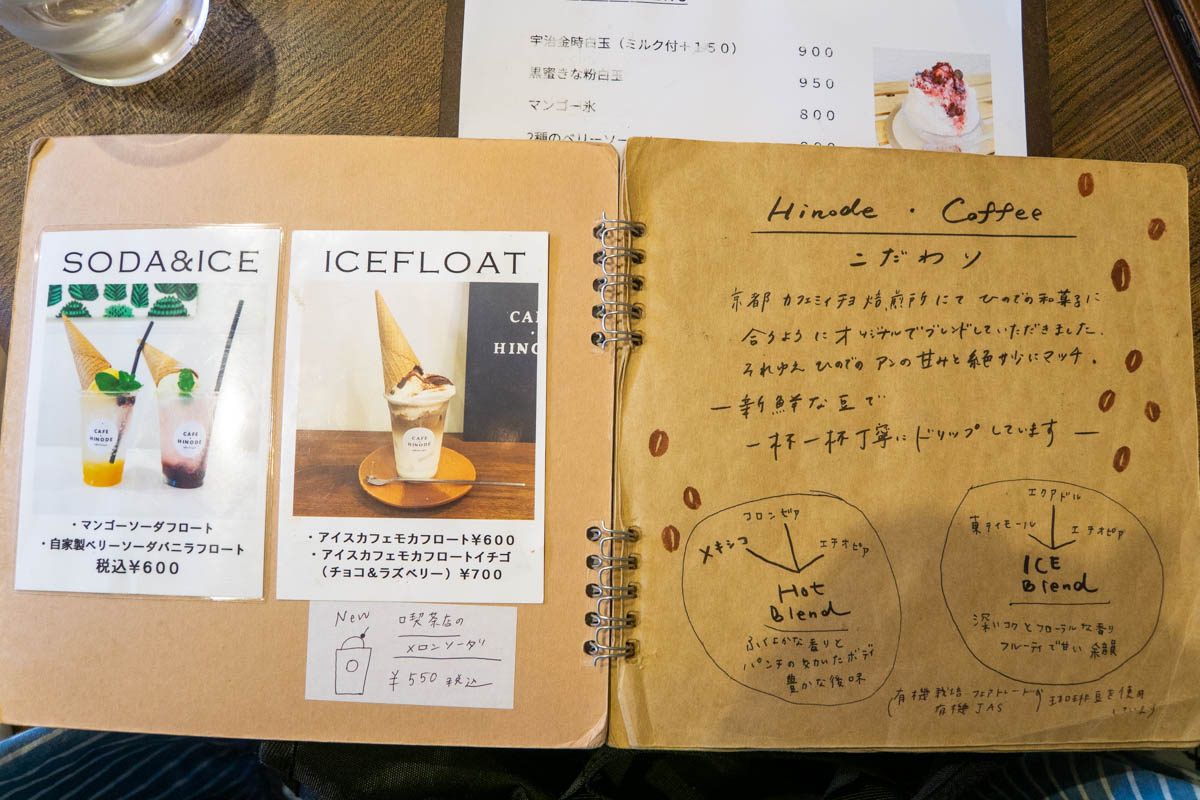 宇治金時白玉（ミルク付＋１５０） ９００
黒蜜きな粉白玉 ９５０
マンゴー氷 ８００
2種のベリーソー
SODA&ICE
CAFE
HINODE
CAFE
HINODE
・マンゴーソーダフロート
・自家製ベリーソーダバニラフロート
税込¥600
ICEFLOAT
CA
HINO
CAFE
HINODE
・アイスカフェモカフロート¥600
・アイスカフェモカフロートイチゴ
（チョコ&ラズベリー）¥700
New
喫茶店の
メロンソーダ
¥550 税込
Hinode・Coffee
こだわり
京都 カフェミィチヨ 焙煎所にて ひのでの和菓子に
合うように オリジナルでブレンドしていただきました。
それゆえ ひのでの アンの甘みと絶妙にマッチ。
ー新鮮な豆で
一杯一杯丁寧にドリップしています ー
コロンビア
メキシコ
エチオピア
Hot
Blend
ふくよかな香りと
パンチの効いたボディ
豊かな後味
エクアドル
東ティモール
エチオピア
ICE
Blend
深いコクとフローラルな香り
フルーティで甘い 余韻
(有機栽培 フェアトレード 珈琲豆を使用
有機JAS